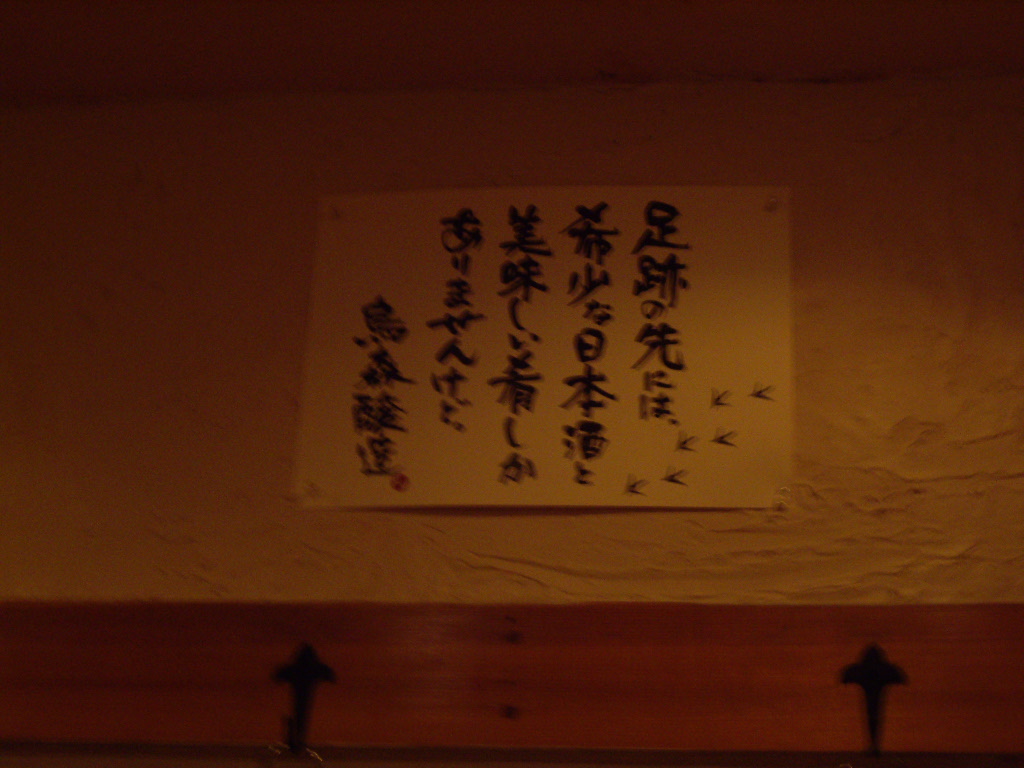 足跡の先には、
希少な日本酒と
美味しい肴しか
ありませんけど…
烏森醸造